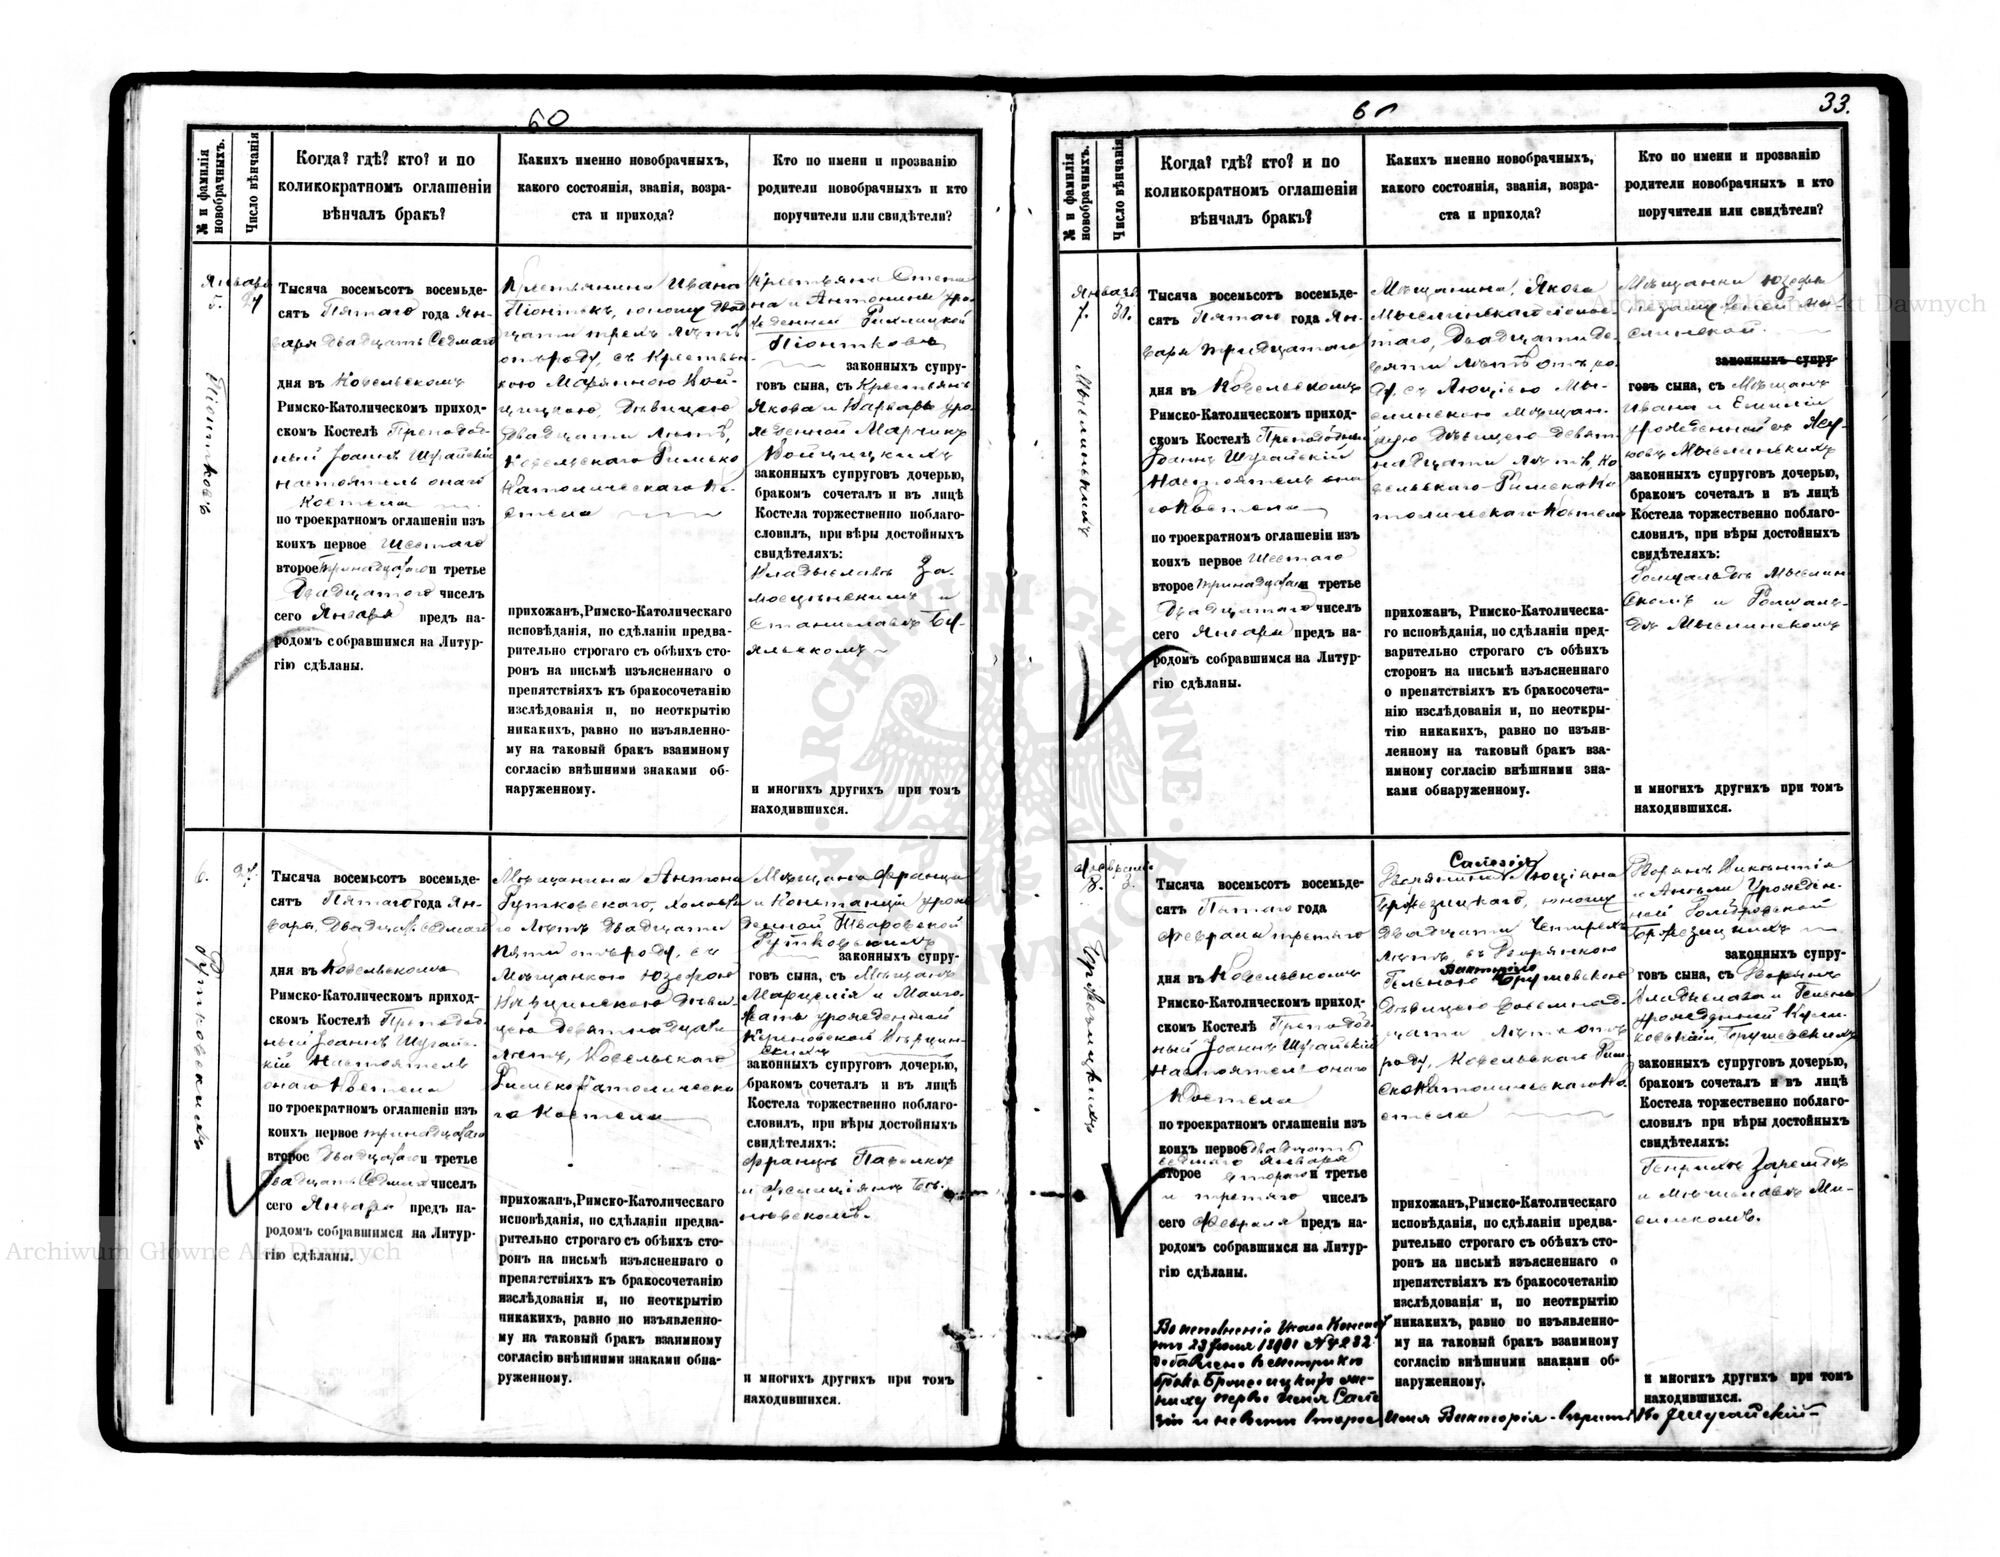 60
№ и фамилія новобрачныхъ.
Число вѣнчанія
Когда? гдѣ? кто? и по
коликократномъ оглашеніи
вѣнчалъ бракъ?
Какихъ именно новобрачныхъ,
какого состоянія, званія, возра-
ста и прихода?
Кто по имени и прозванію
родители новобрачныхъ и кто
поручители или свидѣтели?
Января
5. 27
Піонтковъ
Тысяча восемьсотъ восемьде-
сятъ Пятаго года Ян-
варя двадцать Седмаго
дня въ Ковельскомъ
Римско-Католическомъ приход-
скомъ Костелѣ Преподоб-
ный Іоаннъ Шугайскій
настоятель онаго
Костела
по троекратномъ оглашеніи изъ
коихъ первое Шестаго
второе тринадцатаго и третье
Двадцатаго чиселъ
сего Января предъ на-
родомъ собравшимся на Литур-
гію сдѣланы.
Крестьянина Ивана
Піонтекъ, юношу двад-
цати трехъ лѣтъ
отъ роду, съ Крестьян-
кою Маріянною Вой-
цицкою дѣвицею
двадцати лѣтъ,
Ковельскаго Римско
Католическаго Ко-
стела
прихожан, Римско-Католическаго
исповѣданія, по сдѣланіи предва-
рительно строгаго съ обѣихъ сто-
ронъ на письмѣ изъясненнаго о
препятствіяхъ къ бракосочетанію
изслѣдованія и, по неоткрытію
никакихъ, равно по изъявленно-
му на таковый бракъ взаимному
согласію внѣшними знаками об-
наруженному.
Крестьянъ Степа-
на и Антонины уро-
жденной
Піонтковъ
законныхъ супру-
говъ сына, съ Крестьянъ
Якова и Варвары уро-
жденной Марчукъ
Войцицкихъ
законныхъ супруговъ дочерью,
бракомъ сочеталъ и въ лицѣ
Костела торжественно поблаго-
словилъ, при вѣры достойныхъ
свидѣтеляхъ:
Владыславѣ За-
и
Станиславѣ
и многихъ другихъ при томъ
находившихся.
6. 27.
Рутковскихъ
Тысяча восемьсотъ восемьде-
сятъ Пятаго года Ян-
варя, двадцать седмаго
дня въ Ковельскомъ
Римско-Католическомъ приход-
скомъ Костелѣ Преподоб-
ный Іоаннъ Шугай-
скій Настоятель
онаго Костела
по троекратномъ оглашеніи изъ
коихъ первое тринадцатаго
второе Двадцатаго и третье
Двадцать Седмаго чиселъ
сего Января предъ на-
родомъ собравшимся на Литур-
гію сдѣланы.
Мѣщанина Антона
Рутковскаго, холоста-
го лѣтъ двадцати
пяти отъ роду, съ
Мѣщанкою Юзефою
дѣви-
цею девятнадцати
лѣтъ, Ковельскаго
Римско Католическа-
го Костела
прихожан, Римско-Католическаго
исповѣданія, по сдѣланіи предва-
рительно строгаго съ обѣихъ сто-
ронъ на письмѣ изъясненнаго о
препятствіяхъ къ бракосочетанію
изслѣдованія и, по неоткрытію
никакихъ, равно по изъявленно-
му на таковый бракъ взаимному
согласію внѣшними знаками обна-
руженному.
Мѣщанъ Франца
и Констанціи уро-
жденной Тваровской
Рутковскихъ
законныхъ супру-
говъ сына, съ Мѣщанъ
Марцелія и Малго-
жаты урожденной
законныхъ супруговъ дочерью,
бракомъ сочеталъ и въ лицѣ
Костела торжественно поблаго-
словилъ, при вѣры достойныхъ
свидѣтеляхъ:
Францѣ
и Фелиціянѣ
и многихъ другихъ при томъ
находившихся.
61
33.
№ и фамилія новобрачныхъ.
Число вѣнчанія
Когда? гдѣ? кто? и по
коликократномъ оглашеніи
вѣнчалъ бракъ?
Какихъ именно новобрачныхъ,
какого состоянія, званія, возра-
ста и прихода?
Кто по имени и прозванію
родители новобрачныхъ и кто
поручители или свидѣтели?
Января
7. 30.
Мыслинскихъ
Тысяча восемьсотъ восемьде-
сятъ Пятаго года Ян-
варя тридцатаго
дня въ Ковельскомъ
Римско-Католическомъ приход-
скомъ Костелѣ Преподобный
Іоаннъ Шугайскій
Настоятель она-
го Костела
по троекратномъ оглашеніи изъ
коихъ первое Шестаго
второе тринадцатаго и третье
Двадцатаго чиселъ
сего Января предъ на-
родомъ собравшимся на Литур-
гію сдѣланы.
Мѣщанина Якова
Мыслинскаго холос-
таго, двадцати де-
вяти лѣтъ отъ ро-
ду, съ Люціею Мы-
слинскою мѣщан-
кою дѣвицею девят-
надцати лѣтъ, Ко-
вельскаго Римско Ка-
толическаго Костела
прихожан, Римско-Католическа-
го исповѣданія, по сдѣланіи пред-
варительно строгаго съ обѣихъ
сторонъ на письмѣ изъясненнаго
о препятствіяхъ къ бракосочета-
нію изслѣдованія и, по неоткры-
тію никакихъ, равно по изъяв-
ленному на таковый бракъ вза-
имному согласію внѣшними зна-
ками обнаруженному.
Мѣщанки Юзефы
незамужней Мы-
слинской.
законныхъ супру-
говъ сына, съ Мѣщанъ
Ивана и Емиліи
урожденной
Мыслинскихъ
законныхъ супруговъ дочерью,
бракомъ сочеталъ и въ лицѣ
Костела торжественно поблаго-
словилъ, при вѣры достойныхъ
свидѣтеляхъ:
Ромуальдѣ Мыслин-
скомъ и
Мыслинскомъ
и многихъ другихъ при томъ
находившихся.
Февраля
8. 3.
Тысяча восемьсотъ восемьде-
сятъ Пятаго года
Февраля третьяго
дня въ Ковельскомъ
Римско-Католическомъ приход-
скомъ Костелѣ Преподоб-
ный Іоаннъ Шугайскій
Настоятель онаго
Костела
по троекратномъ оглашеніи изъ
коихъ первое двадцать
седмаго Января
второе втораго и третье
и третяго чиселъ
сего Февраля предъ на-
родомъ собравшимся на Литур-
гію сдѣланы.
Во исполненіе Указа Консист
отъ 23 1901 № 4282
добавлено въ метрику
брака
первое имя Сале-
зій и невѣсты второе имя Викторія. Шугайскій
Салезія
Дворянина Люціяна
юношу
двадцати четырехъ
лѣтъ, съ Дворянкою
Викторіею
Геленою Грушевскою
дѣвицею восемнад-
цати лѣтъ отъ
роду, Ковельскаго Рим-
ско Католическаго Ко-
стела
прихожан, Римско-Католическаго
исповѣданія, по сдѣланіи предва-
рительно строгаго съ обѣихъ сто-
ронъ на письмѣ изъясненнаго о
препятствіяхъ къ бракосочетанію
изслѣдованія и, по неоткрытію
никакихъ, равно по изъявленно-
му на таковый бракъ взаимному
согласію внѣшними знаками об-
наруженному.
Дворянъ Викентія
и Анели урожден-
ной
законныхъ супру-
говъ сына, съ Дворянъ
Владыслава и Гелены
урожденной
Грушевскихъ
законныхъ супруговъ дочерью,
бракомъ сочеталъ и въ лицѣ
Костела торжественно поблаго-
словилъ, при вѣры достойныхъ
свидѣтеляхъ:
Генрихѣ Зарембѣ
и Мечиславѣ
и многихъ другихъ при томъ
находившихся.
Archiwum Główne Akt Dawnych
Archiwum Główne Akt Dawnych
ARCHIWUM GŁÓWNE AKT DAWNYCH